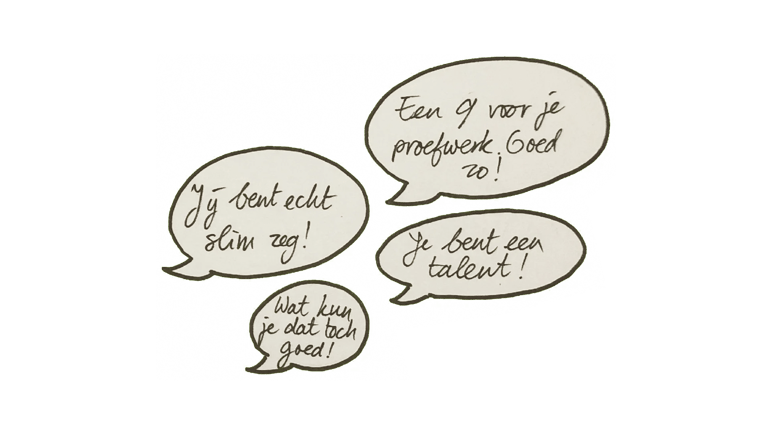 Een 9 voor je
proefwerk. Goed
zo!
Jij bent echt
slim zeg!
Je bent een
talent!
Wat kun
je dat toch
goed!